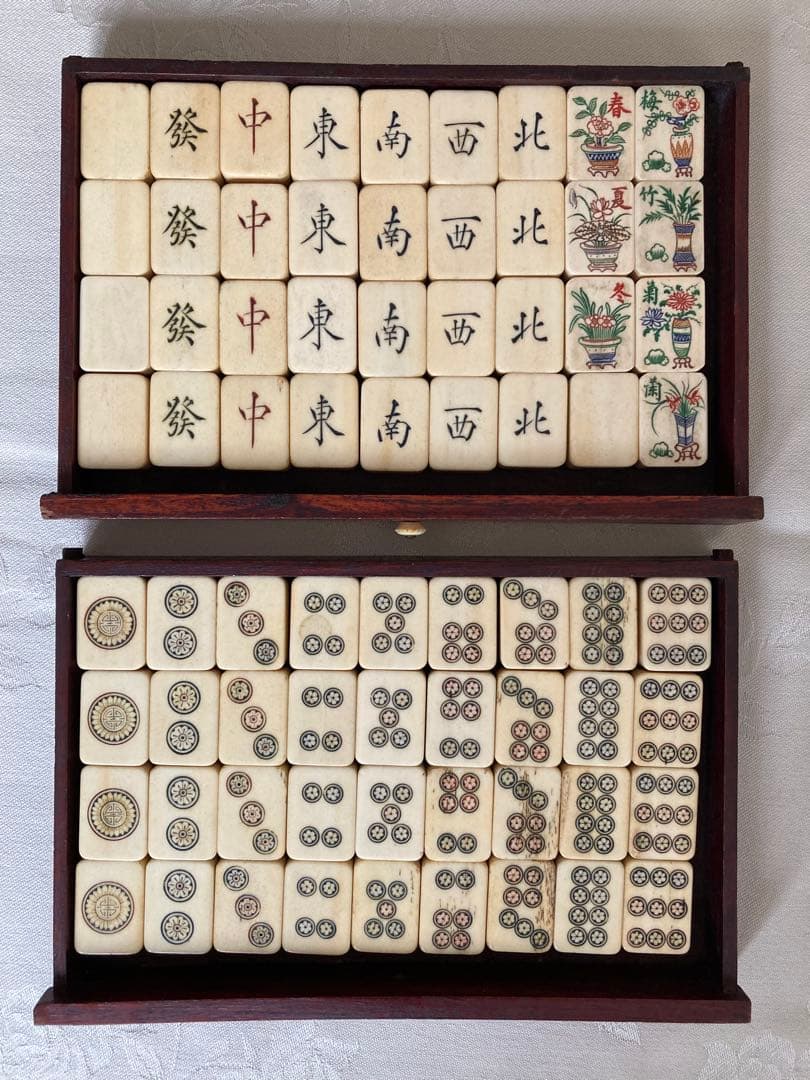 發 中 東 南 西 北 春 梅
發 中 東 南 西 北 夏 竹
發 中 東 南 西 北 冬 菊
發 中 東 南 西 北 蘭